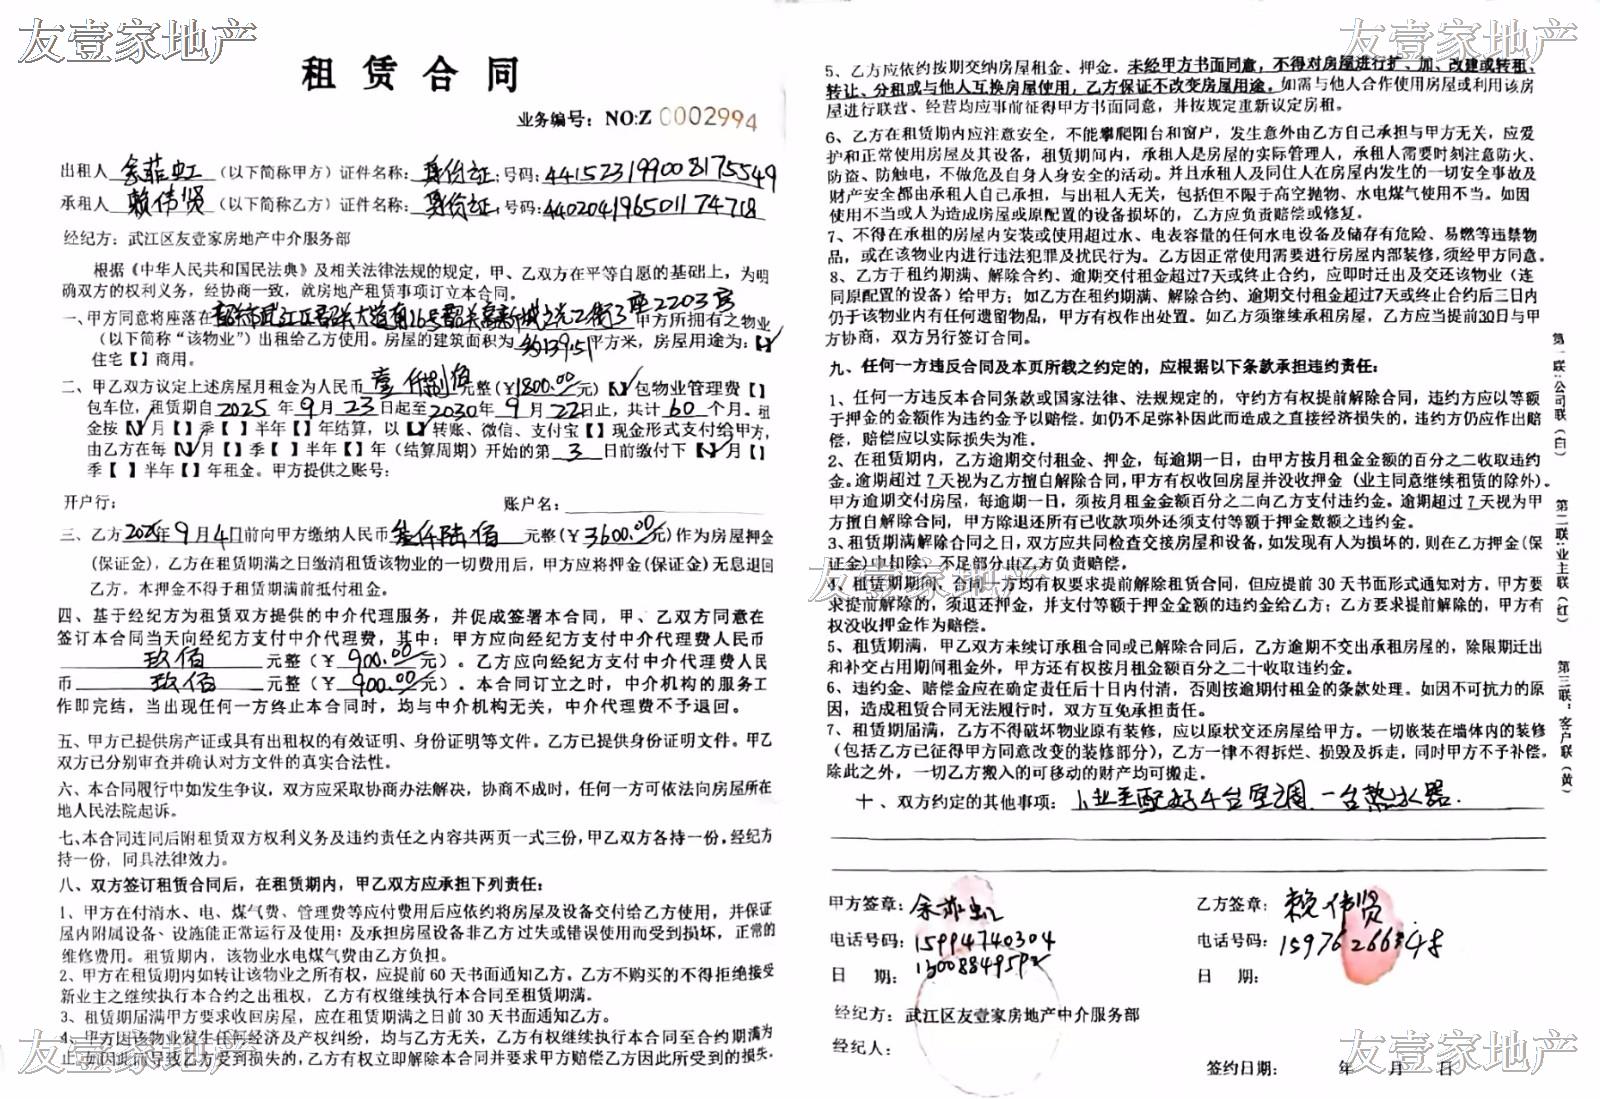 友壹家地产
友壹家地产
租赁合同
业务编号：NO:Z 0002994
出租人 余菲虹 （以下简称甲方）证件名称：身份证；号码：441523199008175549
承租人 赖伟贤 （以下简称乙方）证件名称：身份证；号码：440204196501174718
经纪方：武江区友壹家房地产中介服务部
根据《中华人民共和国民法典》及相关法律法规的规定，甲、乙双方在平等自愿的基础上，为明
确双方的权利义务，经协商一致，就房地产租赁事项订立本合同。
一、甲方同意将座落在韶关市武江区韶关大道南16号韶关高新城之光二街3座2203房 甲方所拥有之物业
（以下简称“该物业”）出租给乙方使用。房屋的建筑面积为 约139.51平方米，房屋用途为：【✓】
住宅【 】商用。
二、甲乙双方议定上述房屋月租金为人民币 壹仟捌佰 元整（¥1800.00元）【✓】包物业管理费【 】
包车位，租赁期自2025年9月23日起至2030年9月22日止，共计60个月。租
金按【✓】月【 】季【 】半年【 】年结算，以【✓】转账、微信、支付宝【 】现金形式支付给甲方，
由乙方在每【✓】月【 】季【 】半年【 】年（结算周期）开始的第 3 日前缴付下【✓】月【 】
季【 】半年【 】年租金。甲方提供之账号：
开户行： 账户名：
三、乙方2025年9月4日前向甲方缴纳人民币 叁仟陆佰 元整（¥3600.00元）作为房屋押金
（保证金），乙方在租赁期满之日缴清租赁该物业的一切费用后，甲方应将押金（保证金）无息退回
乙方。本押金不得于租赁期满前抵付租金。
四、基于经纪方为租赁双方提供的中介代理服务，并促成签署本合同，甲、乙双方同意在
签订本合同当天向经纪方支付中介代理费，其中：甲方应向经纪方支付中介代理费人民币
玖佰 元整（¥ 900.00元）。乙方应向经纪方支付中介代理费人民
币 玖佰 元整（¥ 900.00元）。本合同订立之时，中介机构的服务工
作即完结，当出现任何一方终止本合同时，均与中介机构无关，中介代理费不予退回。
五、甲方已提供房产证或具有出租权的有效证明、身份证明等文件。乙方已提供身份证明文件。甲乙
双方已分别审查并确认对方文件的真实合法性。
六、本合同履行中如发生争议，双方应采取协商办法解决，协商不成时，任何一方可依法向房屋所在
地人民法院起诉。
七、本合同连同后附租赁双方权利义务及违约责任之内容共两页一式三份，甲乙双方各持一份，经纪方
持一份，同具法律效力。
八、双方签订租赁合同后，在租赁期内，甲乙双方应承担下列责任：
1、甲方在付清水、电、煤气费、管理费等应付费用后应依约将房屋及设备交付给乙方使用，并保证
屋内附属设备、设施能正常运行及使用；及承担房屋设备非乙方过失或错误使用而受到损坏，正常的
维修费用。租赁期内，该物业水电煤气费由乙方负担。
2、甲方在租赁期内如转让该物业之所有权，应提前60天书面通知乙方。乙方不购买的不得拒绝接受
新业主之继续执行本合约之出租权，乙方有权继续执行本合同至租赁期满。
3、租赁期届满甲方要求收回房屋，应在租赁期满之日前30天书面通知乙方。
4、甲方因该物业发生任何经济及产权纠纷，均与乙方无关，乙方有权继续执行本合同至合约期满为
止，如因此而导致乙方受到损失的，乙方有权立即解除本合同并要求甲方赔偿乙方因此所受到的损失。
友壹家地产
5、乙方应依约按期交纳房屋租金、押金。未经甲方书面同意，不得对房屋进行扩、加、改建或转租、
转让、分租或与他人互换房屋使用，乙方保证不改变房屋用途。如需与他人合作使用房屋或利用该房
屋进行联营、经营均应事前征得甲方书面同意，并按规定重新议定房租。
6、乙方在租赁期内应注意安全，不能攀爬阳台和窗户，发生意外由乙方自己承担与甲方无关，应爱
护和正常使用房屋及其设备，租赁期间内，承租人是房屋的实际管理人，承租人需要时刻注意防火、
防盗、防触电，不做危及自身人身安全的活动。并且承租人及同住人在房屋内发生的一切安全事故及
财产安全都由承租人自己承担，与出租人无关，包括但不限于高空抛物、水电煤气使用不当。如因
使用不当或人为造成房屋或原配置的设备损坏的，乙方应负责赔偿或修复。
7、不得在承租的房屋内安装或使用超过水、电表容量的任何水电设备及储存有危险、易燃等违禁物
品，或在该物业内进行违法犯罪及扰民行为。乙方因正常使用需要进行房屋内部装修，须经甲方同意。
8、乙方于租约期满、解除合约、逾期交付租金超过7天或终止合约，应即时迁出及交还该物业（连
同原配置的设备）给甲方；如乙方在租约期满、解除合约、逾期交付租金超过7天或终止合约后三日内
仍于该物业内有任何遗留物品，甲方有权作出处置。如乙方须继续承租房屋，乙方应当提前30日与甲
方协商，双方另行签订合同。
九、任何一方违反合同及本页所载之约定的，应根据以下条款承担违约责任：
1、任何一方违反本合同条款或国家法律、法规规定的，守约方有权提前解除合同，违约方应以等额
于押金的金额作为违约金予以赔偿。如仍不足弥补因此而造成之直接经济损失的，违约方仍应作出赔
偿，赔偿应以实际损失为准。
2、在租赁期内，乙方逾期交付租金、押金，每逾期一日，由甲方按月租金金额的百分之二收取违约
金。逾期超过7天视为乙方擅自解除合同，甲方有权收回房屋并没收押金（业主同意继续租赁的除外）。
甲方逾期交付房屋，每逾期一日，须按月租金金额百分之二向乙方支付违约金。逾期超过7天视为甲
方擅自解除合同，甲方除退还所有已收款项外还须支付等额于押金数额之违约金。
3、租赁期满解除合同之日，双方应共同检查交接房屋和设备，如发现有人为损坏的，则在乙方押金（保
证金）中扣除，不足部分由乙方负责赔偿。
4、租赁期期间，合同一方均有权要求提前解除租赁合同，但应提前30天书面形式通知对方。甲方要
求提前解除的，须退还押金，并支付等额于押金金额的违约金给乙方；乙方要求提前解除的，甲方有
权没收押金作为赔偿。
5、租赁期满，甲乙双方未续订承租合同或已解除合同后，乙方逾期不交出承租房屋的，除限期迁出
和补交占用期间租金外，甲方还有权按月租金额百分之二十收取违约金。
6、违约金、赔偿金应在确定责任后十日内付清，否则按逾期付租金的条款处理。如因不可抗力的原
因，造成租赁合同无法履行时，双方互免承担责任。
7、租赁期届满，乙方不得破坏物业原有装修，应以原状交还房屋给甲方。一切嵌装在墙体内的装修
（包括乙方已征得甲方同意改变的装修部分），乙方一律不得拆烂、损毁及拆走，同时甲方不予补偿。
除此之外，一切乙方搬入的可移动的财产均可搬走。
十、双方约定的其他事项： 1、业主配好4台空调、一台热水器．
甲方签章：余菲虹 乙方签章：赖伟贤
电话号码：15994740304 电话号码：15976266348
13008849592
日 期： 日 期：
经纪方：武江区友壹家房地产中介服务部
经纪人：
签约日期： 年 月 日
第一联：公司联（白）
第二联：业主联（红）
第三联：客户联（黄）
友壹家地产
友壹家地产